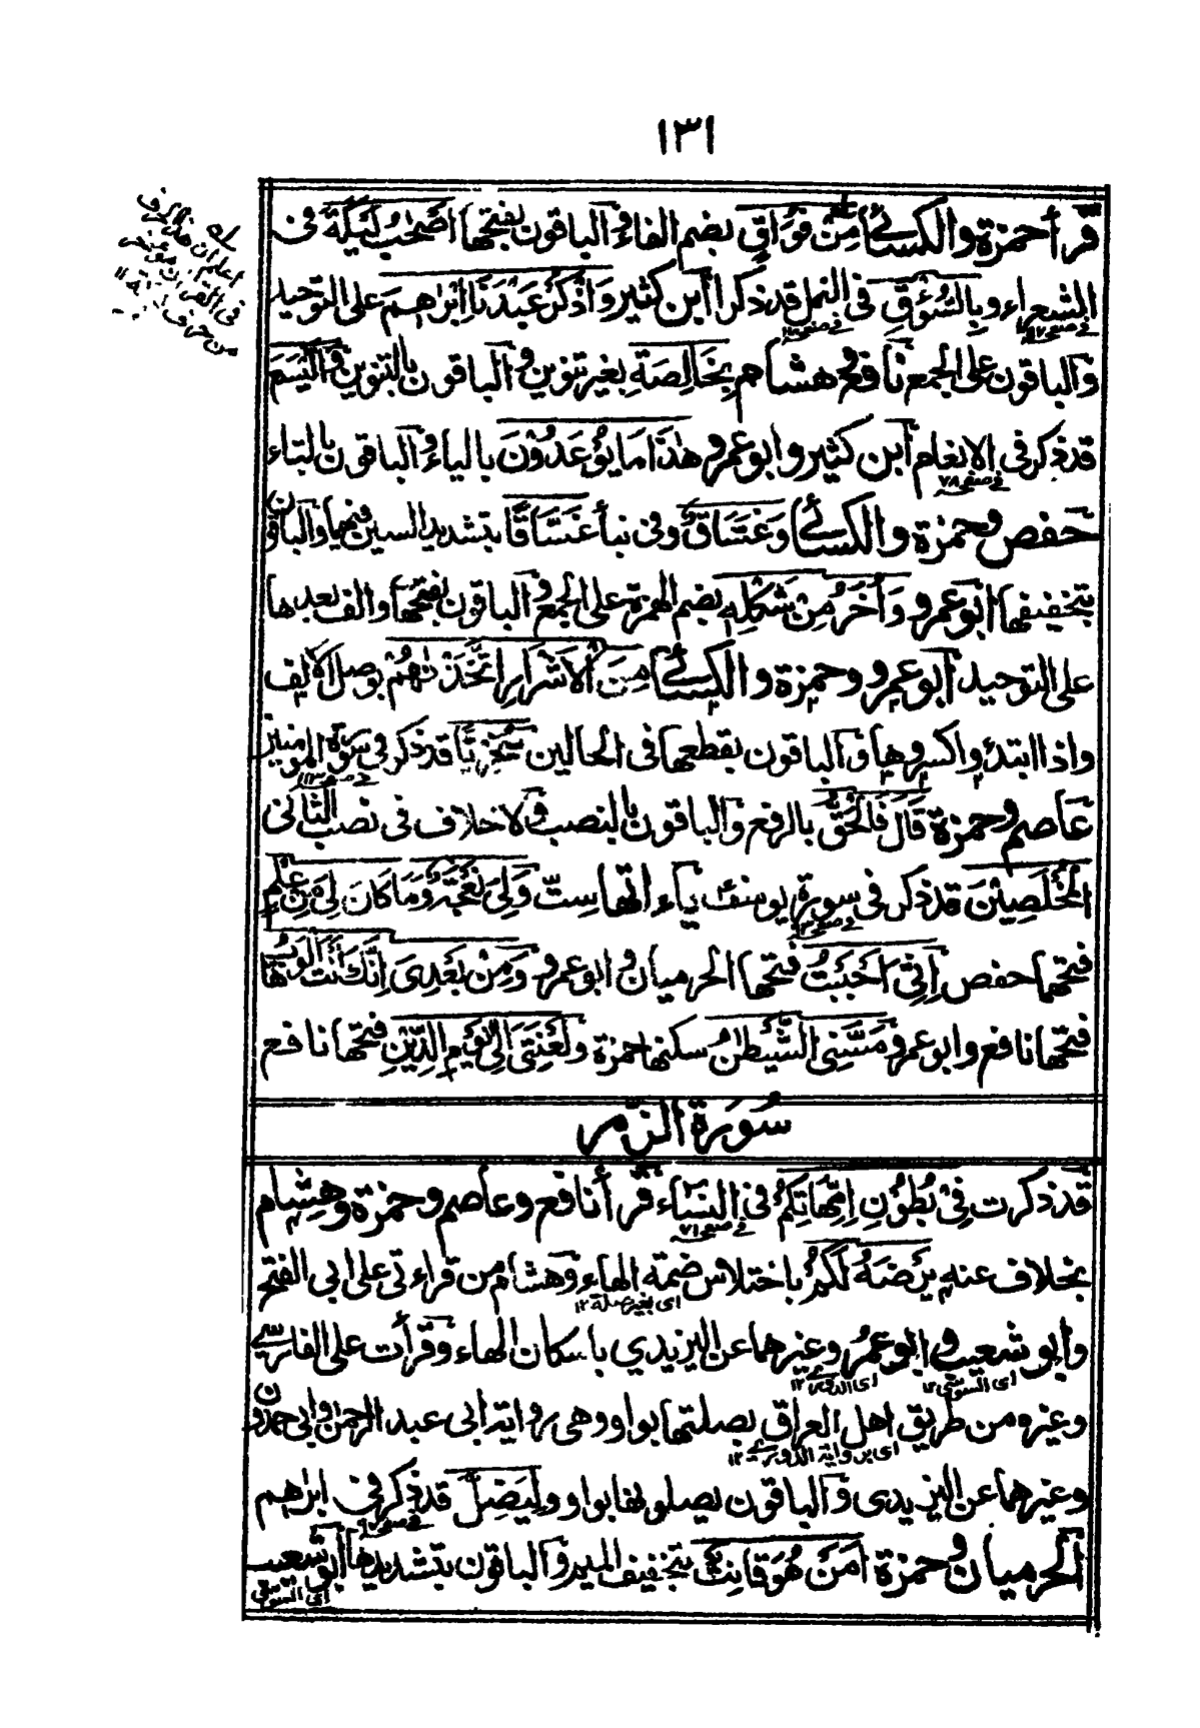 ١٣١
قرأ حمزة والكسائي مِنْ فُوَاقٍ بضم الفاء والباقون بفتحها اَصْحٰبُ لَيْكَةَ فى
الشعراء وبِالسُّؤْقِ فى النمل قد ذكرا ابن كثير وَاذْكُرْ عَبْدَنَا اِبْرٰهِيمَ على التوحيد
فى صفح فى صفح
والباقون على الجمع نافع وهشام بِخَالِصَةِ بغير تنوين والباقون بالتنوين وَالْيَسَعَ
قد ذكر فى الانعام ابن كثير وابو عمرو هٰذَا مَا يُوْعَدُوْنَ بالياء والباقون بالتاء
فى صفح ٧٨
حفص وحمزة والكسائي وَغَسَّاقٌ وفى نبأ غَسَّاقًا بتشديد السين فيهما والباقون
بتخفيفها ابو عمرو وَاُخَرُ مِنْ شَكْلِهٖ بضم الهمزة على الجمع والباقون بفتحها والف بعدها
على التوحيد ابو عمرو وحمزة والكسائي مِنَ الْاَشْرَارِ اتَّخَذْنٰهُمْ بوصل الالف
واذا ابتدؤا كسروها والباقون بقطعها فى الحالين سُخْرِيًّا قد ذكر فى سورة المؤمنين
عاصم وحمزة قَالَ فَالْحَقُّ بالرفع والباقون بالنصب ولا خلاف فى نصب الثانى
الْمُخْلَصِيْنَ قد ذكر فى سورة يوسف ياءاتها ستّ وَلِىَ نَعْجَةٌ وَمَا كَانَ لِىَ مِنْ عِلْمٍ
فى صفح
فتحهما حفص اِنِّىْ اَحْبَبْتُ فتحها الحرميان وابو عمرو وَمِنْ بَعْدِىَ اِنَّكَ اَنْتَ الْوَهَّابُ
فتحها نافع وابو عمرو مَسَّنِىَ الشَّيْطٰنُ سكنها حمزة ولَعْنَتِىَ اِلٰى يَوْمِ الدِّيْنِ فتحها نافع
سُورَة الزّمر
قد ذكرت فِىْ بُطُوْنِ اِمَّهَاتِكُمْ فى النساء قرأ نافع وعاصم وحمزة وهشام
فى صفح ٧١
بخلاف عنه يَرْضَهُ لَكُمْ باختلاس ضمة الهاء وهشام من قراءتى على ابى الفتح
اى بغير صلة ١٢
وابو شعيب وابو عمر وغيرهما عن اليزيدي باسكان الهاء وقرأت على الفارسي
اى السوسي ١٢ اى الدوري ١٢
وغيره من طريق اهل العراق بصلتها بواو وهى رواية ابى عبد الرحمن وابى حمدون
اى بن رواية الدوري ١٢
وغيرهما عن اليزيدى والباقون يصلونها بواو ولِيَضِلَّ قد ذكر فى ابرهيم
فى صفح
الحرميان وحمزة اَمَنْ هُوَ قَانِتٌ بتخفيف الميم والباقون بتشديدها ابو شعيب
اى السوسي
اعلم ان
فى القران
من حرف